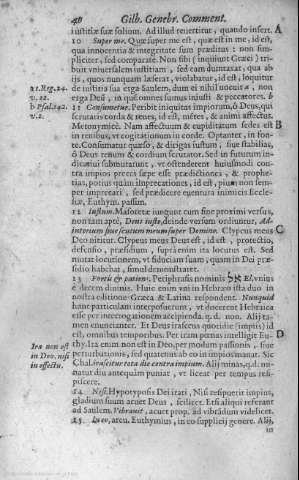 40 Gilb. Genebr. Comment.
iustitiæ suæ solium. Ad illud reuertitur, quando insert. A
10 Super me. Quæ super me est, quæ est in me, id est,
qua innocentia & integritate sum præditus: non sim-
pliciter, sed comparate. Non sibi (inquiunt Græci) tri-
buit vniuersalem iustitiam, sed eam duntaxat, qua ab
ijs, quos nunquam læserat, violabatur, id est, loquitur
de iustitia sua erga Saulem, dum ei nihil nocuit, non
erga Deũ, in quẽ omnes sumus iniusti & peccatores. b
a 1.Reg.24.
v. 12.
b Psal.142.
v. 2.
11 Consumetur. Peribit iniquitas impiorum, ô Deus, qui
scrutaris corda & renes, id est, mẽtes, & animi affectus.
Metonymicè. Nam affectuum & cupiditatum sedes est B
in renibus, vt cogitationum in corde. Optanter, in fon-
te. Consumatur quæso, & diriges iustum, siue stabilias,
ô Deus renum & cordium scrutator. Sed in futurum in-
dicatiui submutatur, vt ostenderent huiusmodi con-
tra impios preces sæpe esse prædictiones, & prophe-
tias, potius quàm imprecationes, id est, pium non sem-
per imprecari, sed prædicere euentura inimicis Eccle-
siæ, Euthym. passim.
12 Iustum. Masoretæ iungunt cum sine proximi versus,
non tam aptè, Deus iuste, deinde versum ordiuntur, Ad-
iutorium siue scutum meum super Domino. Clypeus meus C
Deo nititur. Clypeus meus Deus est, id est, protectio,
defensio, præsidium, supra enim ita locutus est. Sed
mutat locutionem, vt fiduciam suam, quam in Dei præ-
sidio habebat, simul demonstraret.
13 Fortis & patiens. Periphrasis nominis אל El, vnius
è decem diuinis. Huic enim vni in Hebræo ista duo in
nostra editione Græca & Latina respondent. Nunquid
hanc particulam interposuerunt, vt docerent Hebraica
esse per interrogationem accipienda. q.d. non. Alij ta-
men enunciatiuè. Et Deus irascens quotidie (impiis) id
est, omnibus temporibus. Per iram pœnas intelligit Eu- D
thy. Ira enim non est in Deo, per modum passionis, siue
perturbationis, sed quatenus ab eo in impios manat. Sic
Chal. irascitur tota die contra impium. Alij minas, q.d. mi-
natur diu antequam puniat, vt liceat per tempus resi-
piscere.
Ira non est
in Deo, nisi
in effectu.
14 Nisi. Hypotyposis Dei irati, Nisi resipuerit impius,
gladium suum acuet Deus, scilicet. Etsi aliqui referant
ad Saulem. Vibrauit, acuet prop. ad vibrãdum videlicet.
15 In eo, arcu. Euthymius, in eo supplicij genere. Alij,
in